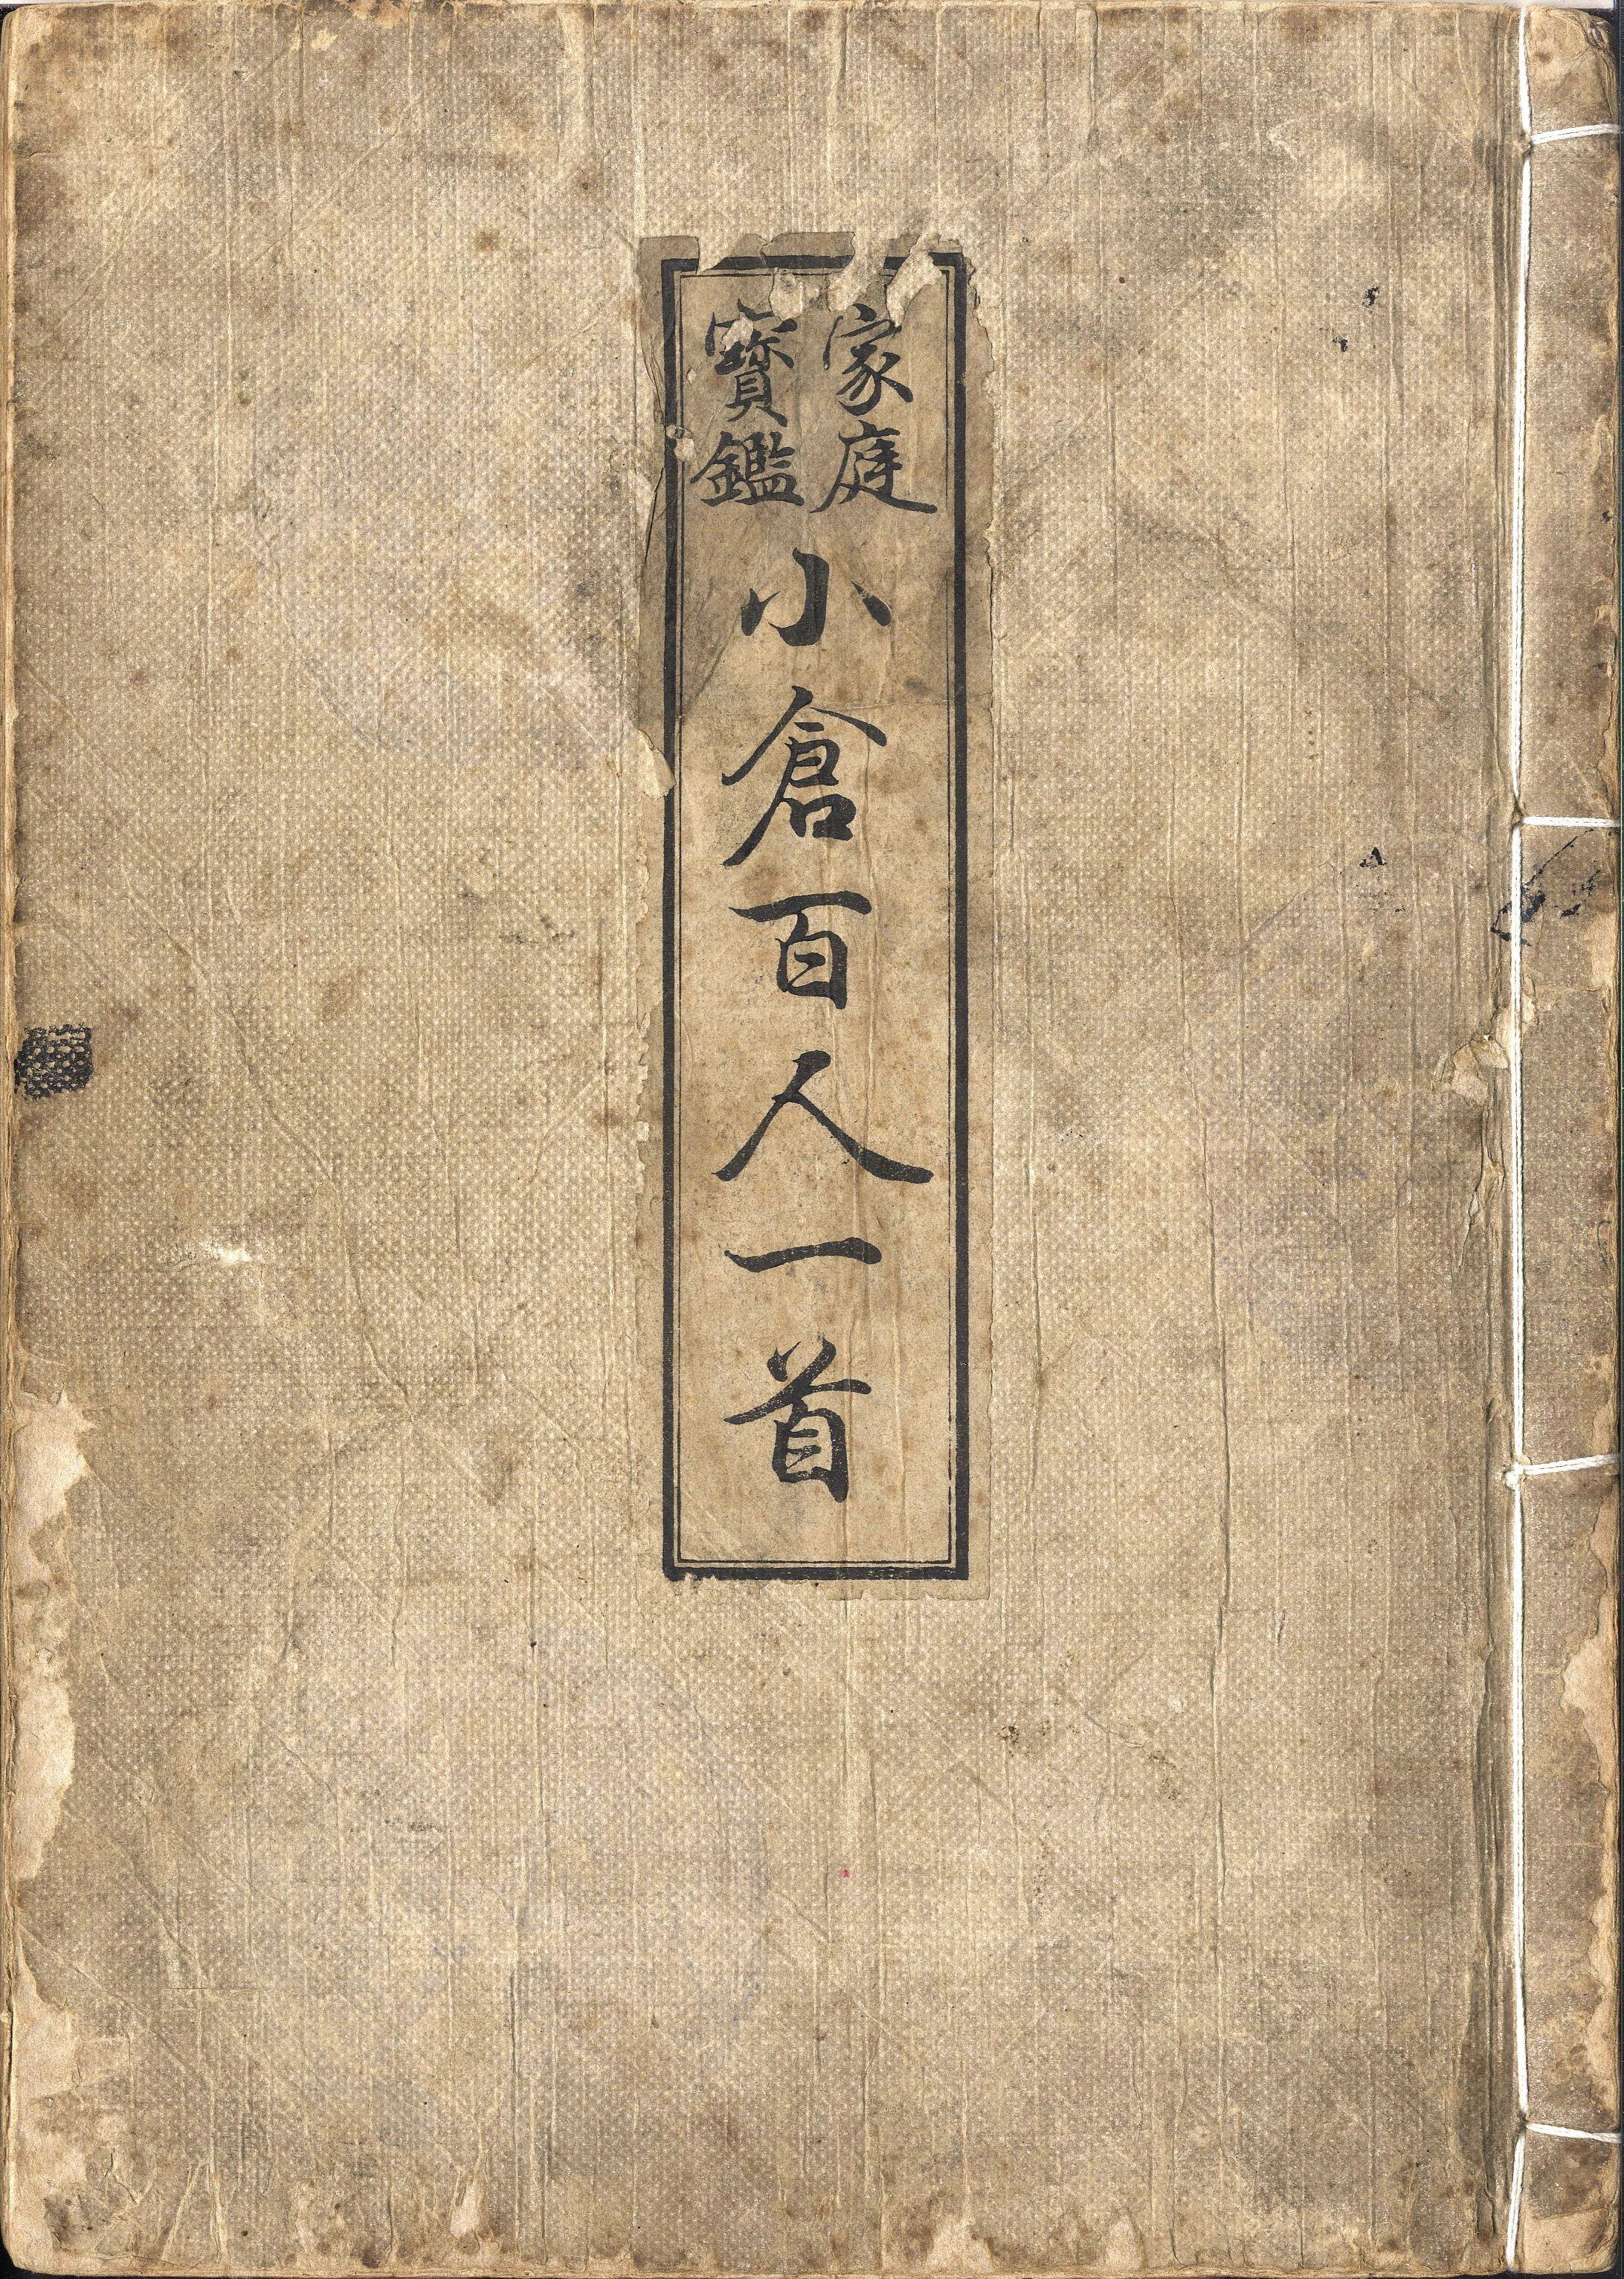 家庭
寳鑑
小倉百人一首